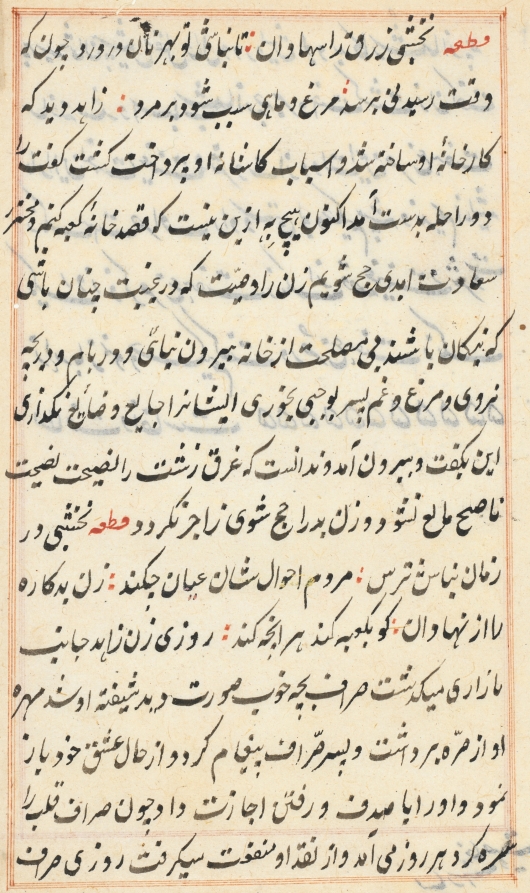 قطعه نخشبی زرق را سها و ان : تا نباشی تو بهر نان در ورد چون که
وقت رسیدنی برسد : مرغ و ماهی سبب شود بر مرد : زاهد دید که
کارخانهٔ او ساخته شد و اسباب کاشانه او پرداخت گشت گفت
دو راحله بدست آمد اکنون هیچ به ازین نیست که قصد خانهٔ کعبه کنم و
سعادت ابدی حج شویم زن را وصیت که در غیبت چنان باشی
که نیکان باشند بی مصلحت از خانه بیرون نیائی و در بام و دریچه
نروی و مرغ و غم پسر بوجبی بخوری ایشانرا جایع و ضایع نگذاری
این بگفت و بیرون آمد و ندانست که غرق زشت را نصیحت نصیحت
ناصح مانع نشود و زن بد را حج شوی زاجر نگردد قطعه نخشبی در
زمان بناس ترس : مردم احوال شان عیان چکند : زن بدکاره
را از نها و ان : کو بکعبه کند هر آنچه کند : روزی زن زاهد جانب
بازاری میگذشت صراف بچه خوب صورت دید شیفته او شد مهره
او از حرّه برداشت و پسر صرّاف پیغام کرد و از حال عشق خود باز
نمود و او را با صدف و رفتن اجازت داد چون صراف قلب را
سره کرد هر روز می آمد و از نقد او منفعت میگرفت روزی صراف